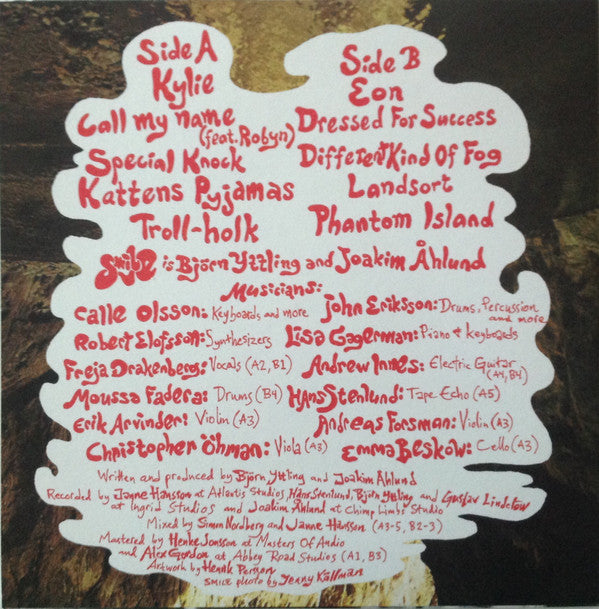 Side A
Kylie
Call my name
(feat. Robyn)
Special Knock
Kattens Pyjamas
Troll-holk
Side B
Eon
Dressed For Success
Different Kind Of Fog
Landsort
Phantom Island
Smile is Björn Yttling and Joakim Åhlund
Musicians:
Calle Olsson: Keyboards and more
John Eriksson: Drums, Percussion and more
Robert Elofsson: Synthesizers
Lisa Gagerman: Piano & Keyboards
Freja Drakenberg: Vocals (A2, B1)
Andrew Innes: Electric Guitar (A4, B4)
Moussa Fadera: Drums (B4)
Hans Stenlund: Tape Echo (A5)
Erik Arvinder: Violin (A3)
Andreas Forsman: Violin (A3)
Christopher Öhman: Viola (A3)
Emma Beskow: Cello (A3)
Written and produced by Björn Yttling and Joakim Åhlund
Recorded by Janne Hansson at Atlantis Studios, Hans Stenlund, Björn Yttling and Gustav Lindelöw
at Ingrid Studios and Joakim Åhlund at Chimp Limbs Studio
Mixed by Simon Nordberg and Janne Hansson (A3-5, B2-3)
Mastered by Henke Jonsson at Masters Of Audio
and Alex Gordon at Abbey Road Studios (A1, B3)
Artwork by Henrik Persson
SMILE photo by Jenny Källman